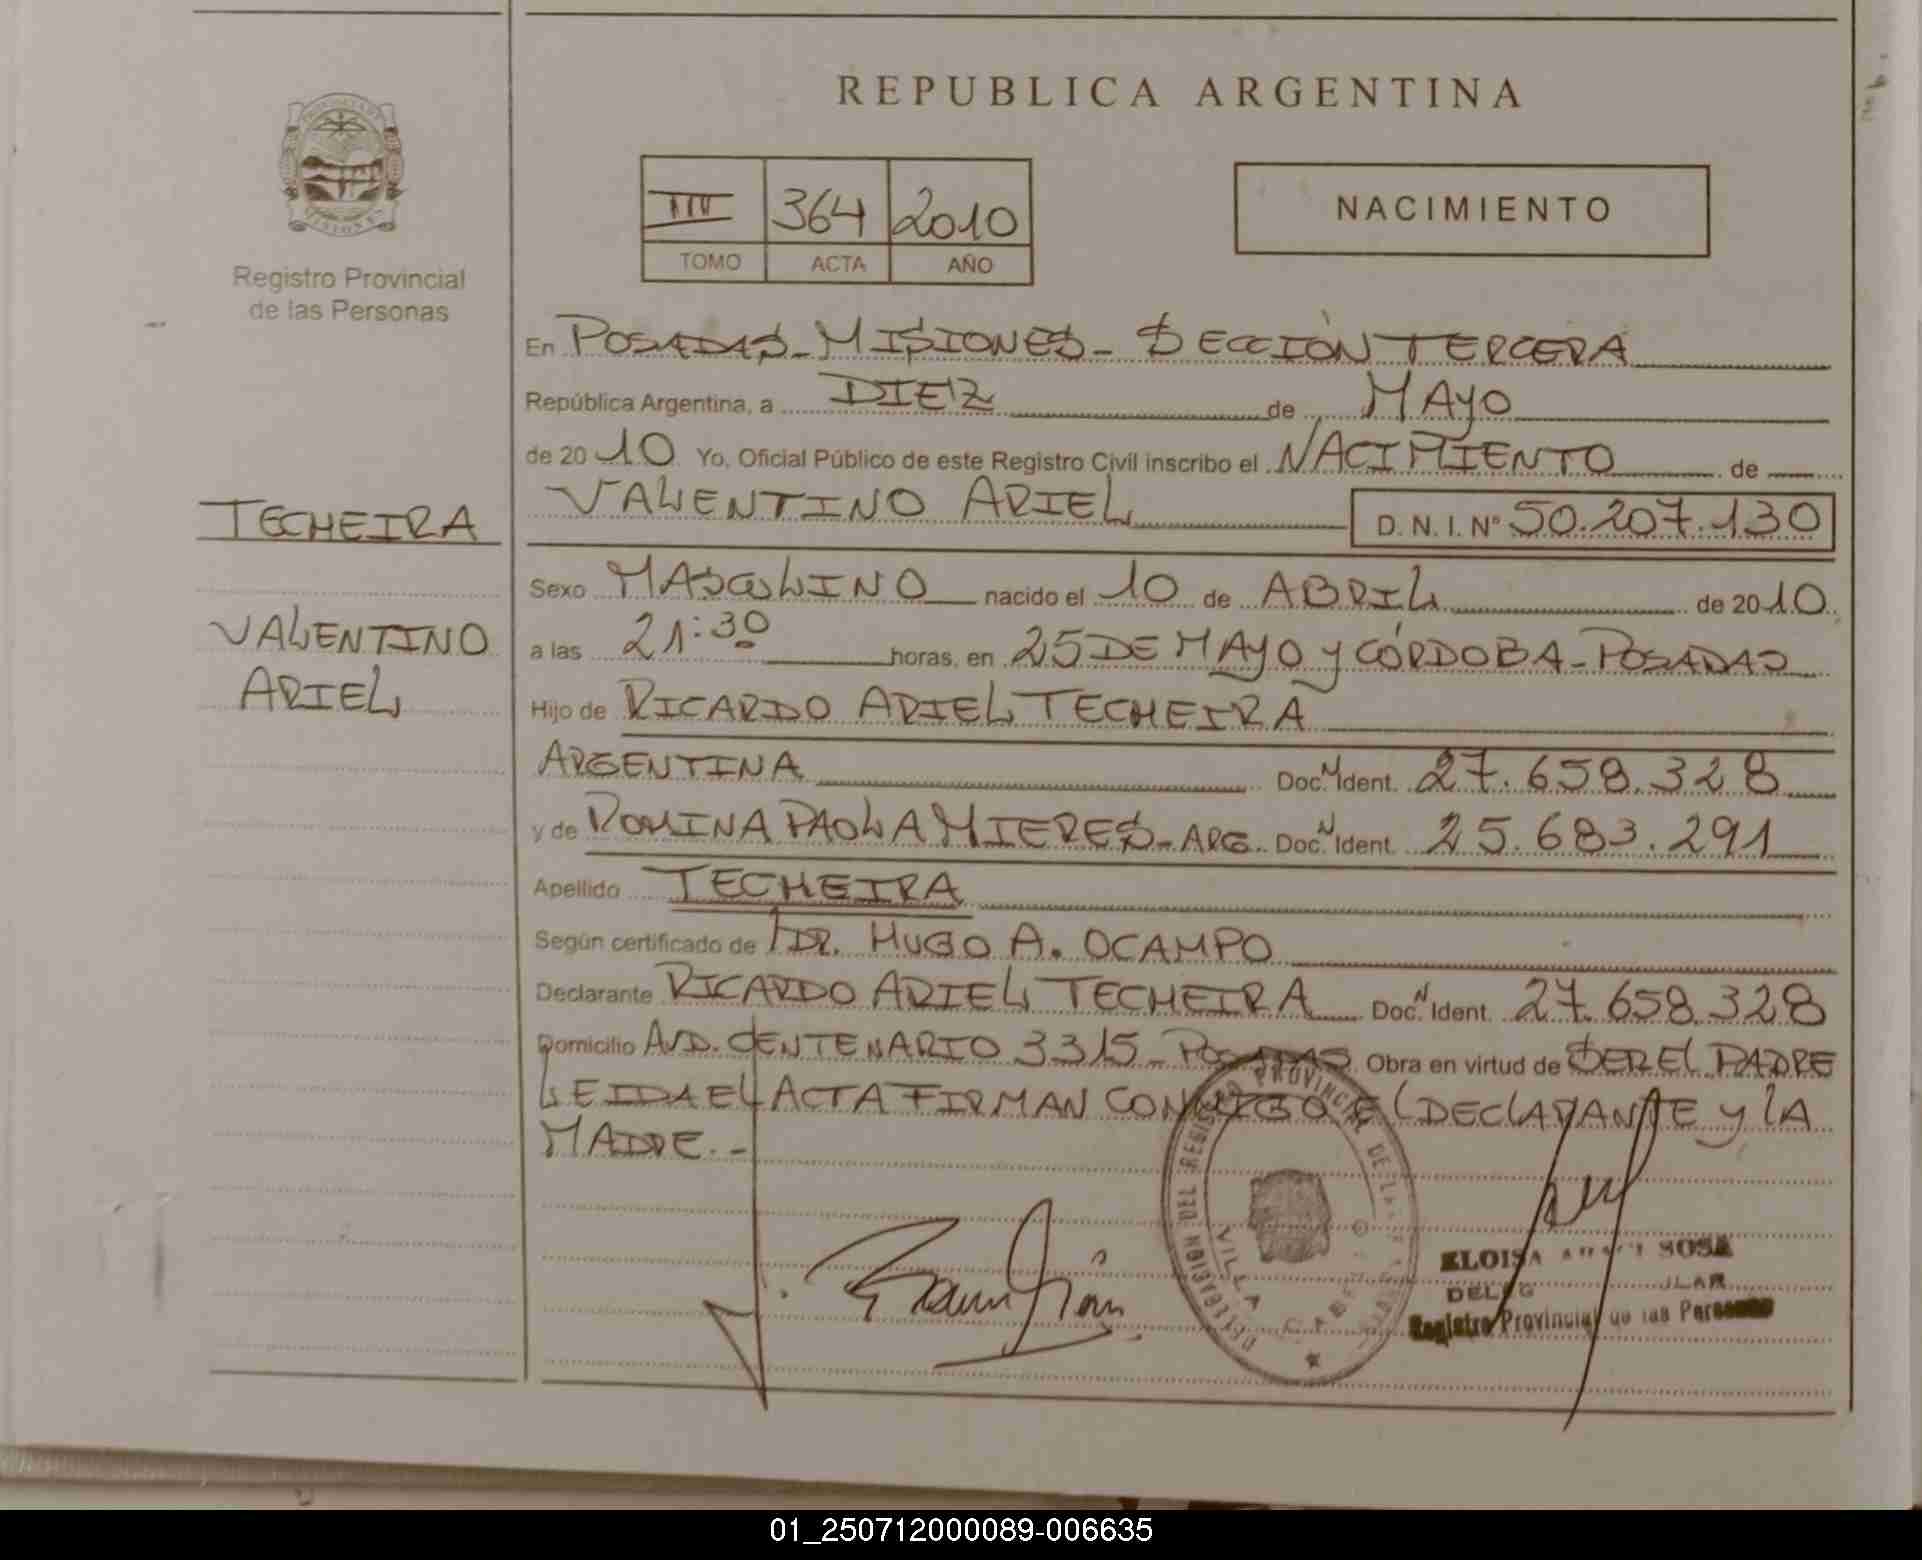 REPUBLICA ARGENTINA
364 2010
TOMO ACTA AÑO
NACIMIENTO
Registro Provincial
de las Personas
TECHEIRA
VALENTINO
ARIEL
En POSADAS - MISIONES - SECCIÓN TERCERA
República Argentina, a DIEZ de MAYO
de 2010 Yo, Oficial Público de este Registro Civil inscribo el NACIMIENTO de
VALENTINO ARIEL D. N. I. Nº 50.207.130
Sexo MASCULINO nacido el 10 de ABRIL de 2010
a las 21:30 horas, en 25 DE MAYO Y CÓRDOBA - POSADAS
Hijo de RICARDO ARIEL TECHEIRA
ARGENTINA Doc. N Ident. 27.658.328
y de ROMINA PAOLA MIERES - ARG. Doc. N Ident. 25.683.291
Apellido TECHEIRA
Según certificado de DR. HUGO A. OCAMPO
Declarante RICARDO ARIEL TECHEIRA Doc. N Ident. 27.658.328
Domicilio AVD. CENTENARIO 3315 - POSADAS Obra en virtud de SER EL PADRE
LEIDA EL ACTA FIRMAN CONMIGO EL DECLARANTE Y LA
MADRE. -
DELEGACION DEL REGISTRO PROVINCIAL DE LAS
VILLA CABELLO
ELOISA SOSA
Registro Provincial de las Personas
01_250712000089-006635